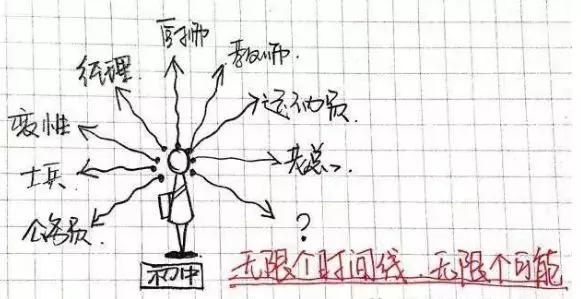 厨师
教师
经理
运动员
变性
老总
士兵
公务员
?
初中
无限个时间线.无限个可能